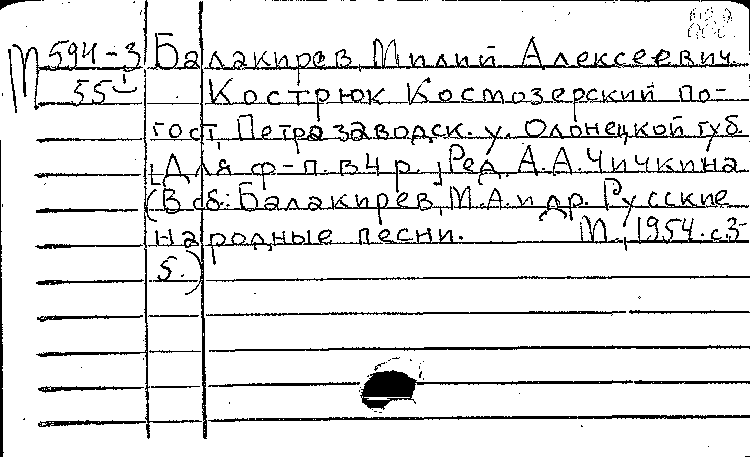 М 594-3 Балакирев, Милий Алексеевич
55 Кострюк Костозерский по-
гост, Петразаводск. у. Олонецкой губ.
[Для ф-п. в 4 р.] Ред. А. А. Чичкина
(В сб.: Балакирев, М. А. и др. Русские
народные песни. М., 1954. с 3-
5.)